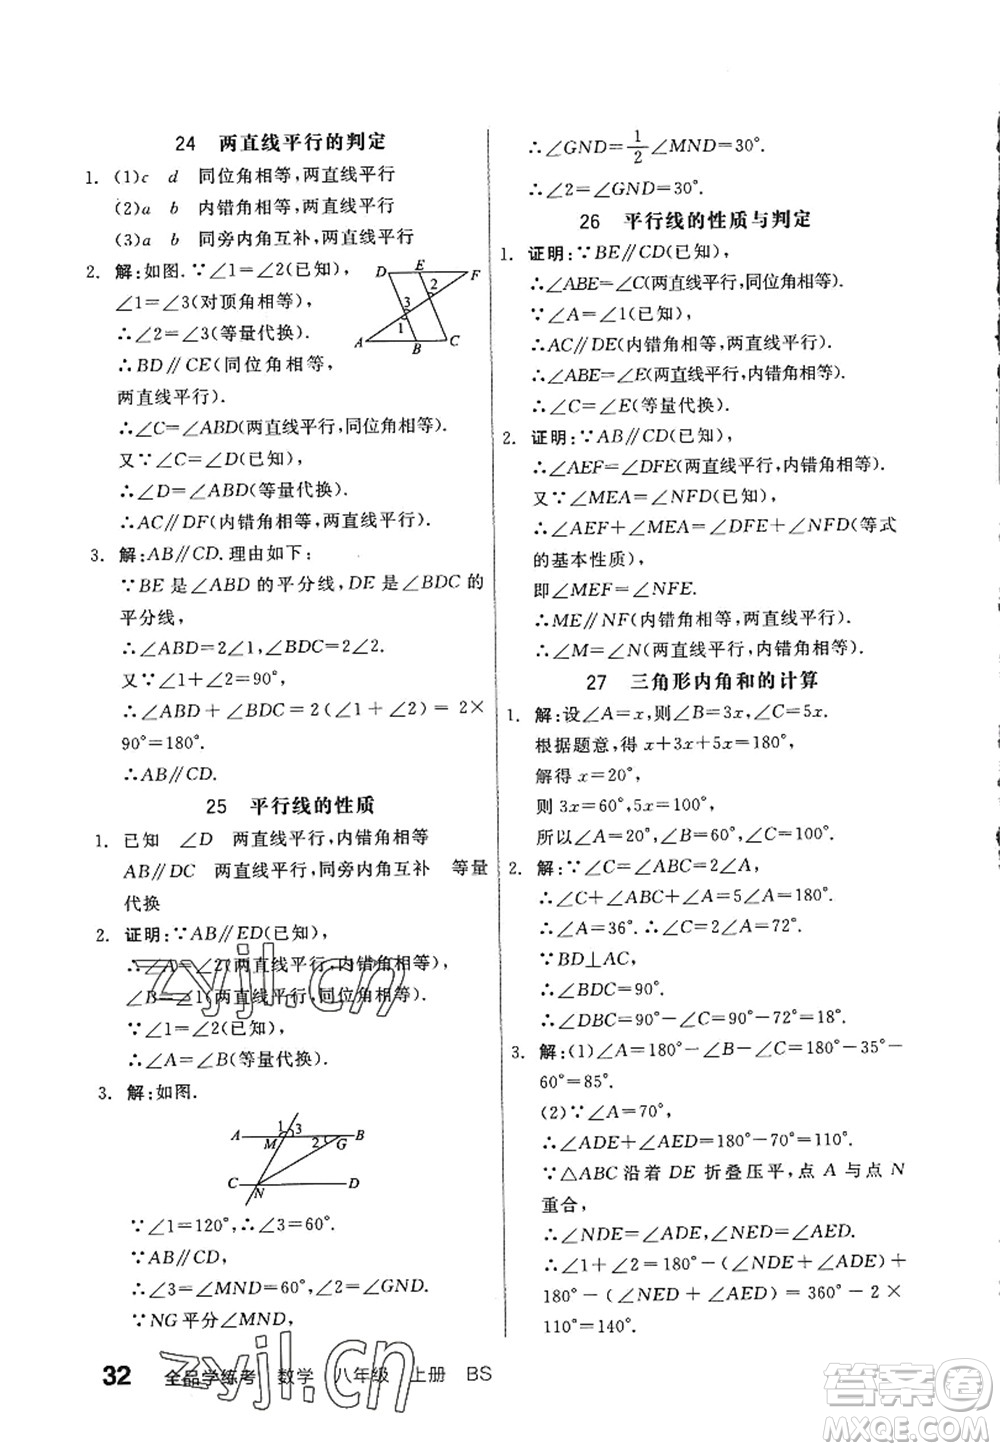 24 两直线平行的判定
1. (1)c d 同位角相等,两直线平行
(2)a b 内错角相等,两直线平行
(3)a b 同旁内角互补,两直线平行
2. 解:如图.∵∠1=∠2(已知),
∠1=∠3(对顶角相等),
∴∠2=∠3(等量代换).
∴BD∥CE(同位角相等,
两直线平行).
D E F
2
3
1
A B C
∴∠C=∠ABD(两直线平行,同位角相等).
又∵∠C=∠D(已知),
∴∠D=∠ABD(等量代换).
∴AC∥DF(内错角相等,两直线平行).
3. 解:AB∥CD.理由如下:
∵BE 是∠ABD 的平分线,DE 是∠BDC 的
平分线,
∴∠ABD=2∠1,∠BDC=2∠2.
又∵∠1+∠2=90°,
∴∠ABD+∠BDC=2(∠1+∠2)=2×
90°=180°.
∴AB∥CD.
25 平行线的性质
1. 已知 ∠D 两直线平行,内错角相等
AB∥DC 两直线平行,同旁内角互补 等量
代换
2. 证明:∵AB∥ED(已知),
∴∠A=∠2(两直线平行,内错角相等),
∠B=∠1(两直线平行,同位角相等).
∵∠1=∠2(已知),
∴∠A=∠B(等量代换).
3. 解:如图.
A 1 3 B
M 2 G
C N D
∵∠1=120°,∴∠3=60°.
∵AB∥CD,
∴∠3=∠MND=60°,∠2=∠GND.
∵NG 平分∠MND,
∴∠GND=1/2∠MND=30°.
∴∠2=∠GND=30°.
26 平行线的性质与判定
1. 证明:∵BE∥CD(已知),
∴∠ABE=∠C(两直线平行,同位角相等).
∵∠A=∠1(已知),
∴AC∥DE(内错角相等,两直线平行).
∴∠ABE=∠E(两直线平行,内错角相等).
∴∠C=∠E(等量代换).
2. 证明:∵AB∥CD(已知),
∴∠AEF=∠DFE(两直线平行,内错角相等).
又∵∠MEA=∠NFD(已知),
∴∠AEF+∠MEA=∠DFE+∠NFD(等式
的基本性质),
即∠MEF=∠NFE.
∴ME∥NF(内错角相等,两直线平行).
∴∠M=∠N(两直线平行,内错角相等).
27 三角形内角和的计算
1. 解:设∠A=x,则∠B=3x,∠C=5x.
根据题意,得 x+3x+5x=180°,
解得 x=20°,
则 3x=60°,5x=100°,
所以∠A=20°,∠B=60°,∠C=100°.
2. 解:∵∠C=∠ABC=2∠A,
∴∠C+∠ABC+∠A=5∠A=180°.
∴∠A=36°.∴∠C=∠ABC=2∠A=72°.
∵BD⊥AC,
∴∠BDC=90°.
∴∠DBC=90°-∠C=90°-72°=18°.
3. 解:(1)∠A=180°-∠B-∠C=180°-35°-
60°=85°.
(2)∵∠A=70°,
∴∠ADE+∠AED=180°-70°=110°.
∵△ABC 沿着 DE 折叠压平,点 A 与点 N
重合,
∴∠NDE=∠ADE,∠NED=∠AED.
∴∠1+∠2=180°-(∠NDE+∠ADE)+
180°-(∠NED+∠AED)=360°-2×
110°=140°.
32 全品学练考 数学 八年级 上册 BS
zyjl.cn
zyjl.cn
答案圈
MXQE.COM